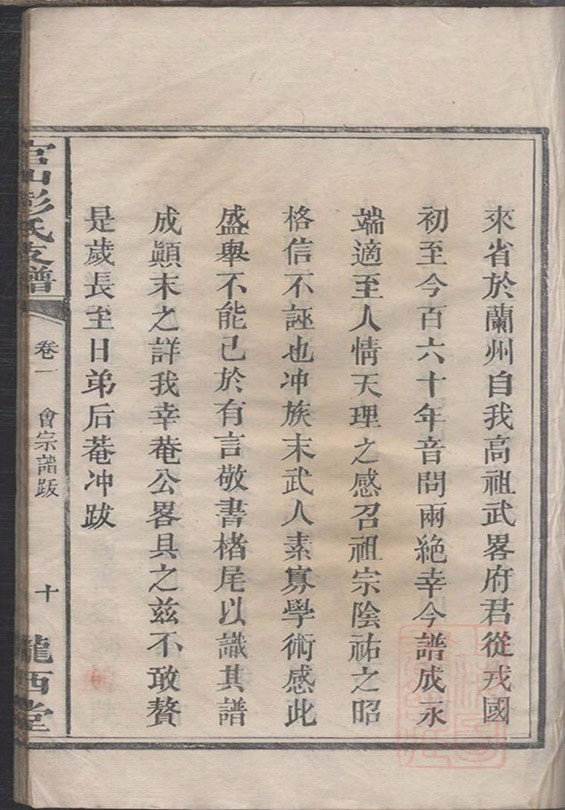 來省於蘭州自我高祖武畧府君從戎國
初至今百六十年音問兩絶幸今譜成永
端適至人情天理之感召祖宗陰祐之昭
格信不誣也冲族末武人素寡學術感此
盛舉不能已於有言敬書楮尾以識其譜
成顚末之詳我幸菴公畧具之兹不敢贅
是歲長至日弟后菴冲跋
彭氏支譜
卷一
會宗譜跋
十
隴西堂